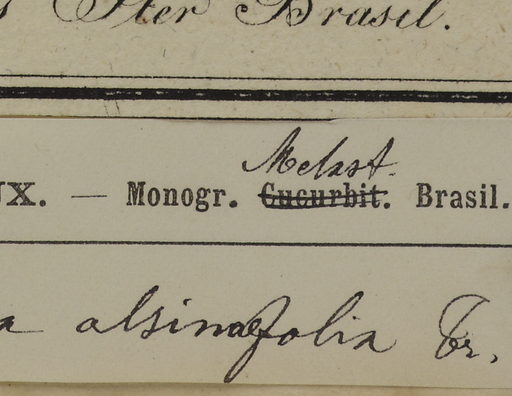 Iter Brasil.
Melast.
UX. — Monogr. Cucurbit. Brasil.
a alsinaefolia Tr.